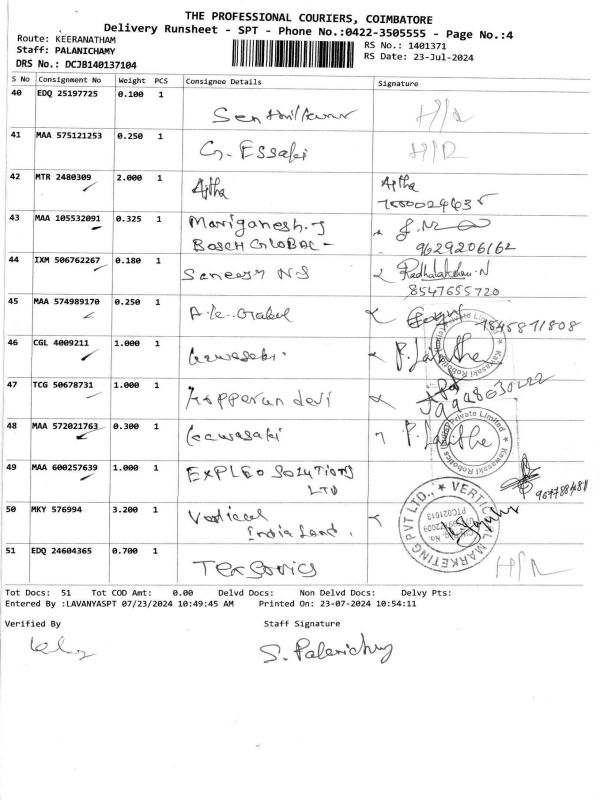 THE PROFESSIONAL COURIERS, COIMBATORE
Delivery Runsheet - SPT - Phone No.:0422-3505555 - Page No.:4
Route: KEERANATHAM
RS No.: 1401371
Staff: PALANICHAMY
RS Date: 23-Jul-2024
DRS No.: DCJB140137104
S No Consignment No Weight PCS Consignee Details Signature
40 EDQ 25197725 0.100 1
Senthilkumar
41 MAA 575121253 0.250 1
G. ESSaki H/R
42 MTR 2480309 2.000 1
Ajtha Ajtha
43 MAA 105532091 0.325 1
Mariganesh.J
BOSCH GLOBAL - 9629206162
44 IXM 506762267 0.180 1
N S
8547655720
45 MAA 574989170 0.250 1
46 CGL 4009211 1.000 1
Kawasaki. P. Lalithe
47 TCG 50678731 1.000 1
devi
48 MAA 572021763 0.300 1
Kawasaki P. Lalithe
Private Limited
Kawasaki Robotics
49 MAA 600257639 1.000 1
EXPLEO SOLUTIONS
LTD
50 MKY 576994 3.200 1
Vertical
India Land.
VERTICAL MARKETING PVT LTD.,
51 EDQ 24604365 0.700 1
H/R
Tot Docs: 51 Tot COD Amt: 0.00 Delvd Docs: Non Delvd Docs: Delvy Pts:
Entered By :LAVANYASPT 07/23/2024 10:49:45 AM Printed On: 23-07-2024 10:54:11
Verified By Staff Signature
S. Palanichamy